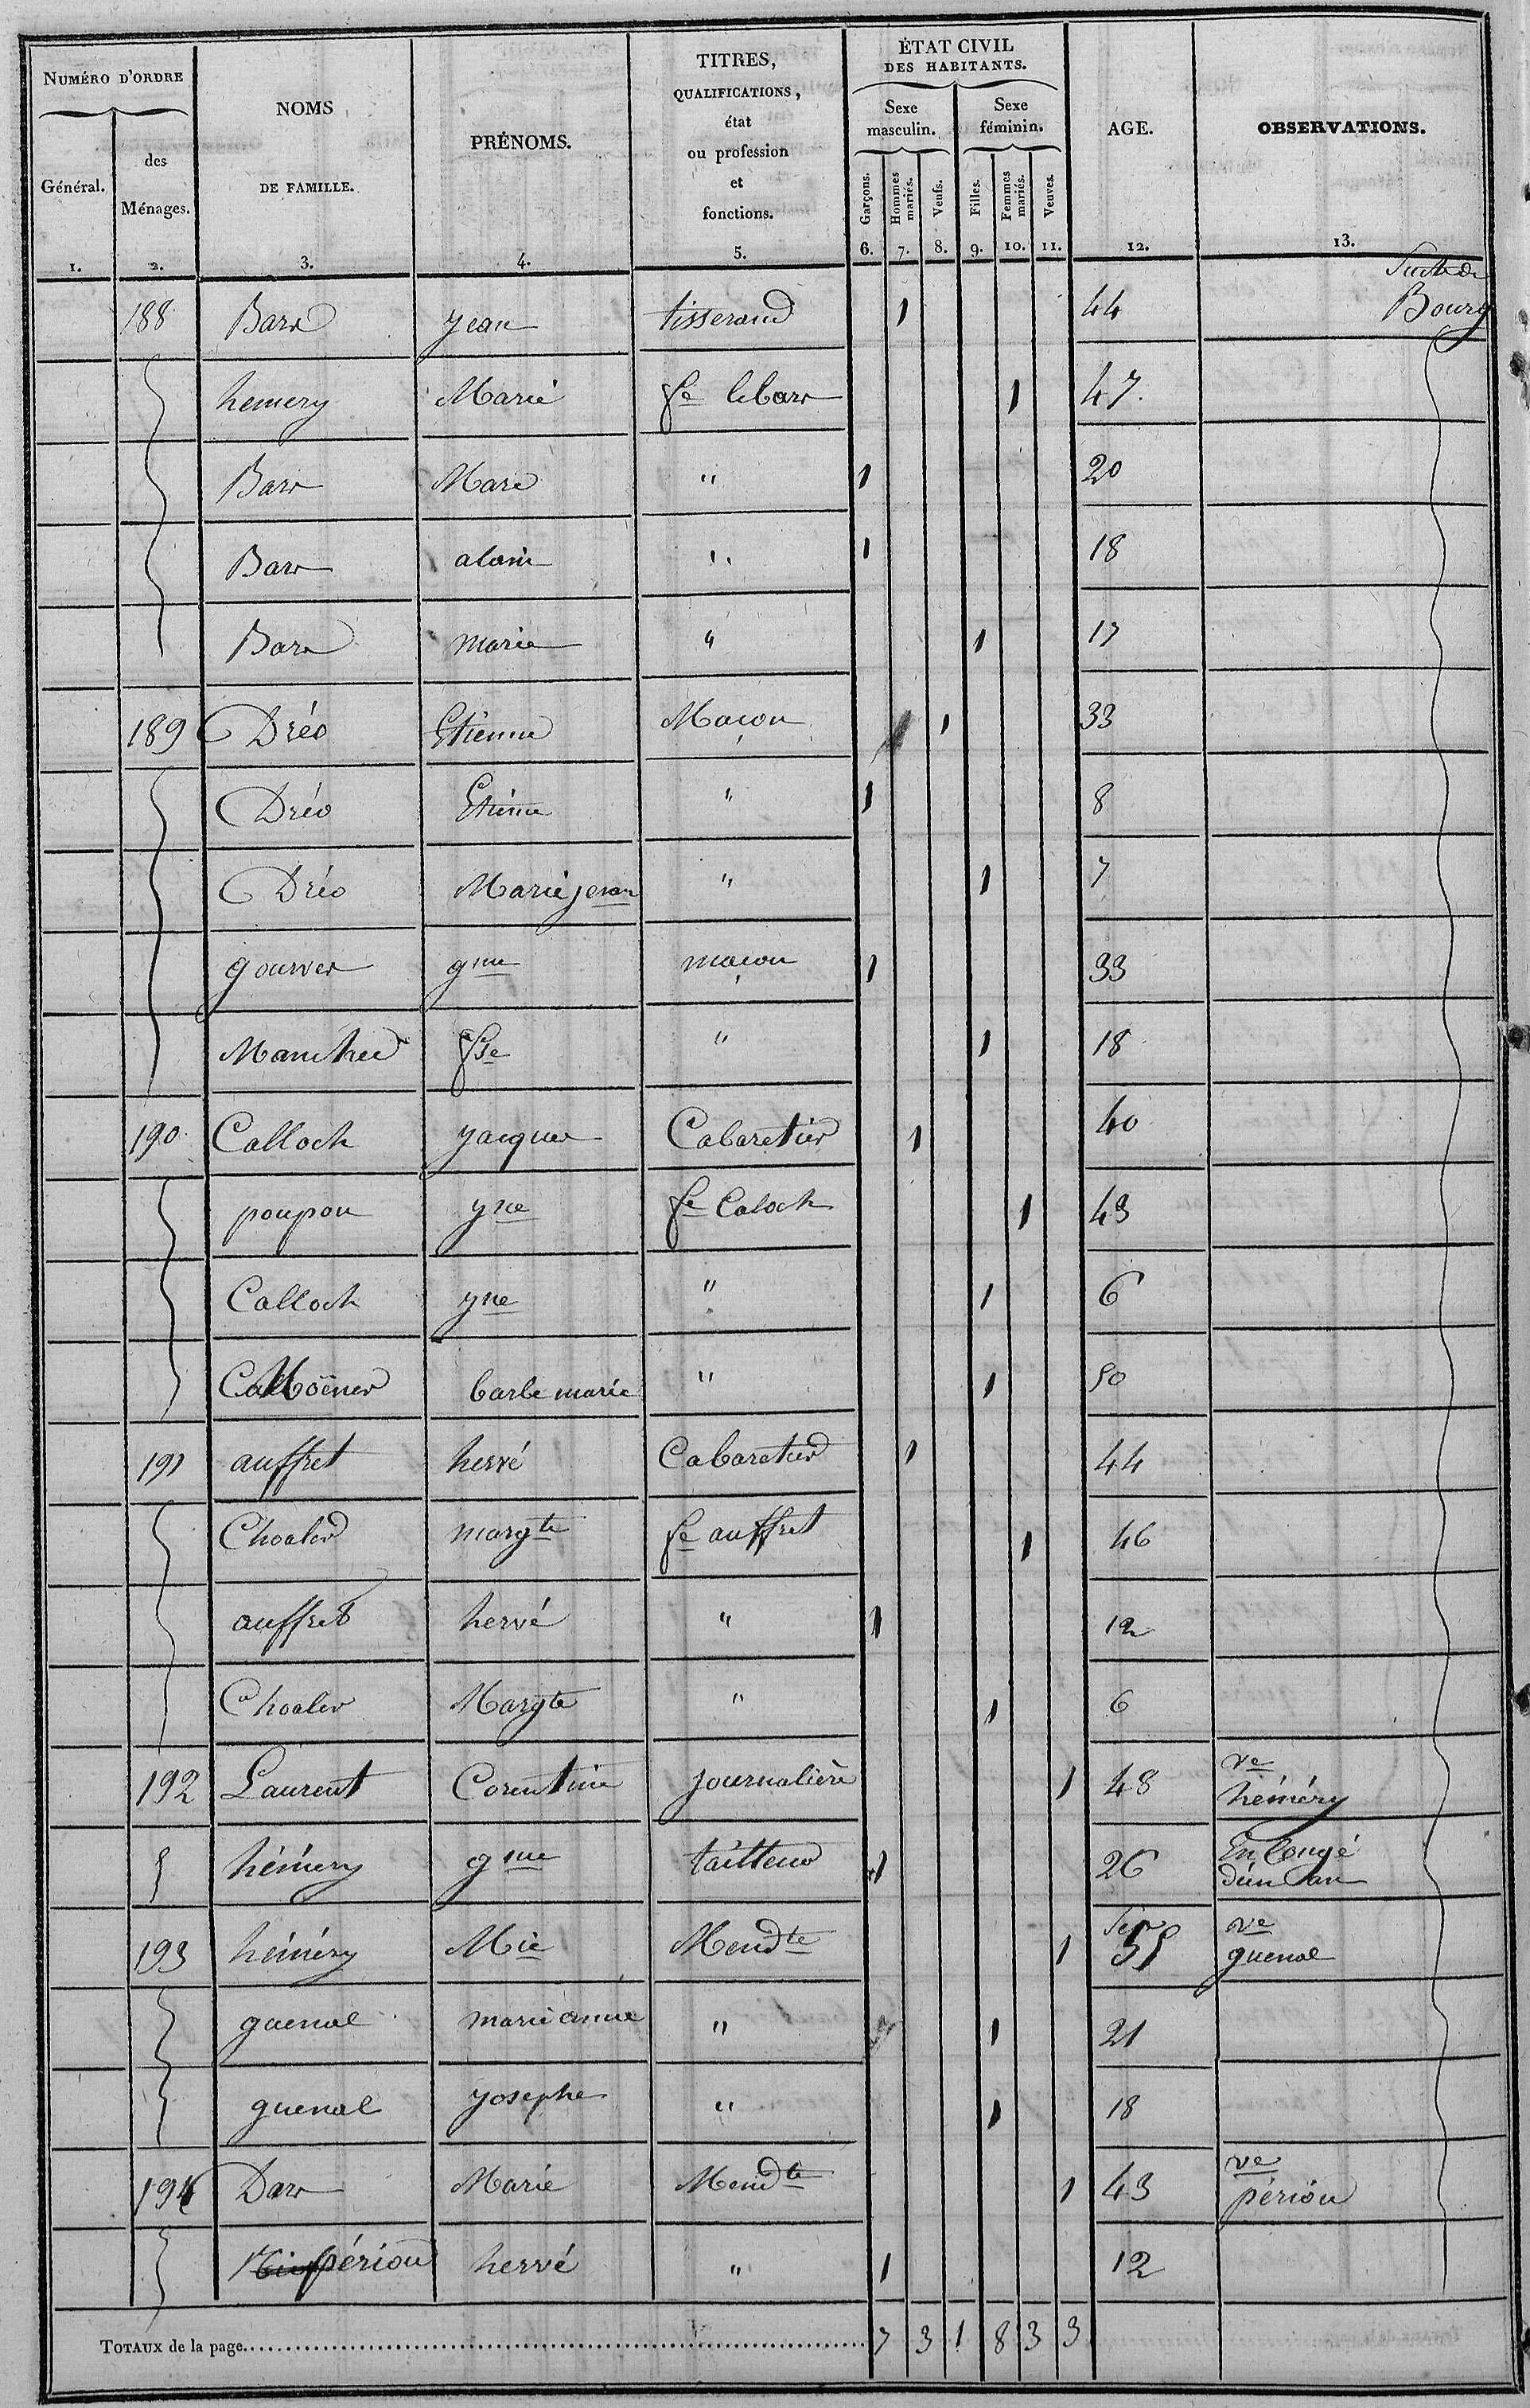 NUMÉRO D'ORDRE
Général.
des
Ménages.
NOMS
DE FAMILLE.
PRÉNOMS.
TITRES,
QUALIFICATIONS,
état
ou profession
et
fonctions.
ÉTAT CIVIL
DES HABITANTS.
Sexe
masculin.
Sexe
féminin.
Garçons.
Hommes
mariés.
Veufs.
Filles.
Femmes
mariés.
Veuves.
AGE.
OBSERVATIONS.
1. 2. 3. 4. 5. 6. 7. 8. 9. 10. 11. 12. 13.
Bourg
188 Barr Jean tisserand 1 44
hemery Marie fe lebarr 1 47.
Barr Marc " 1 20
Barr alain " 1 18
Barr marie " 1 17
189 Dréo Etienne Maçon 1 33
Dréo Etienne " 1 8
Dréo Marie jeanne " 1 7
gourver gme maçon 1 33
fse " 1 18
190 Calloch jacques Cabaretier 1 40
poupon yne fe Caloch 1 43
Calloch yne " 1 6
barbe marie " 1 50
191 auffret hervé Cabaretier 1 44
Choaler margte fe auffret 1 46
auffret hervé " 1 12
Choaler Margte " 1 6
192 Laurent Corentine journalière 1 48 ve
héméry
héméry gme tailleur 1 26 En Congé
d'un an
193 héméry Mie Mendte 1 55 ve
guenal
guenal marie anne " 1 21
guenal josephe " 1 18
194 Darr Marie Mendte 1 43 ve
périou
périou hervé " 1 12
TOTAUX de la page 7 3 1 8 3 3